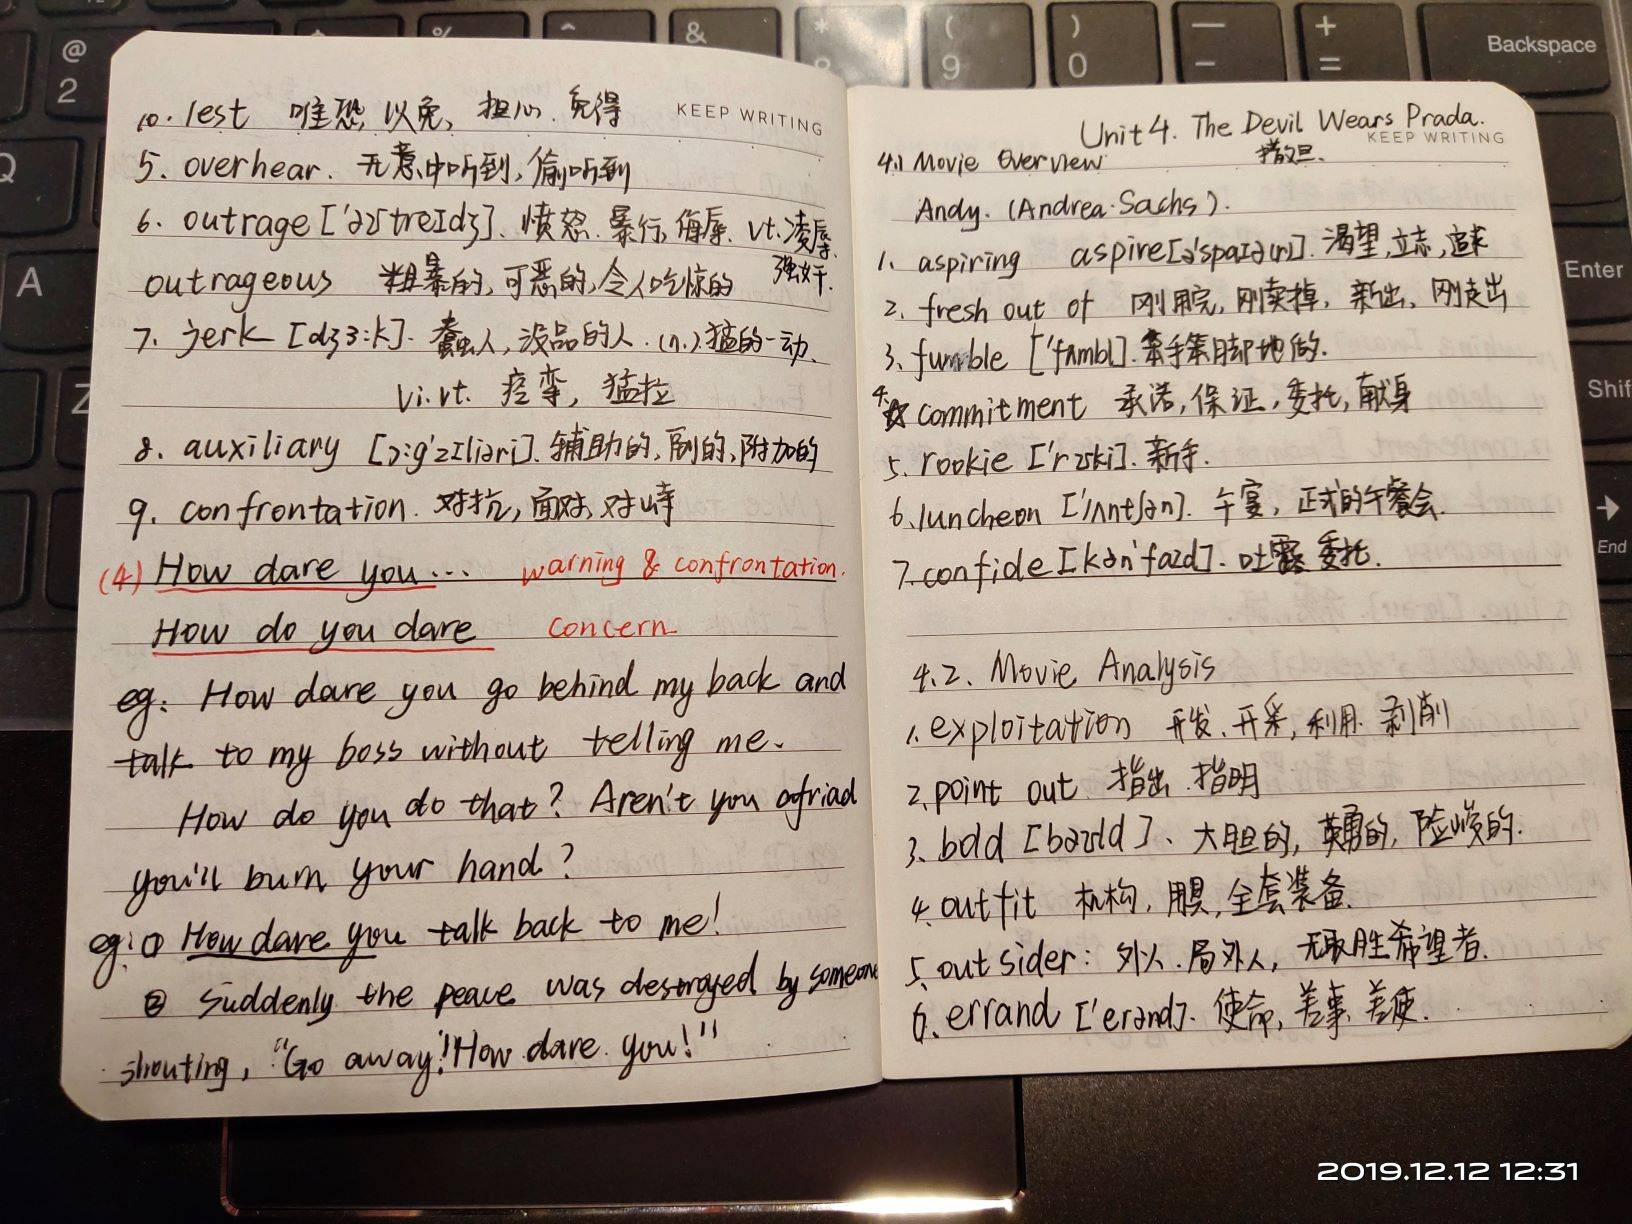 10. lest 唯恐, 以免, 担心. 免得
KEEP WRITING
5. overhear. 无意中听到, 偷听到
6. outrage ['aʊtreɪdʒ]. 愤怒. 暴行, 侮辱. vt. 凌辱,
强奸.
outrageous 粗暴的, 可恶的, 令人吃惊的
7. jerk [dʒɜ:k]. 蠢人, 没品的人. (n.) 猛的一动.
vi. vt. 痉挛, 猛拉
8. auxiliary [ɔ:g'zɪliəri]. 辅助的, 副的, 附加的
9. confrontation. 对抗, 面对, 对峙
(4) How dare you... warning & confrontation.
How do you dare concern
eg: How dare you go behind my back and
talk to my boss without telling me.
How do you do that? Aren't you afriad
you'll burn your hand?
eg: ① How dare you talk back to me!
② Suddenly the peace was destroyed by someone
shouting, "Go away! How dare you!"
Unit 4. The Devil Wears Prada.
KEEP WRITING
4.1 Movie Overview 撒旦.
Andy. (Andrea Sachs).
1. aspiring aspire [ə'spaɪə(r)]. 渴望, 立志, 追求
2. fresh out of 刚用完, 刚卖掉, 新出, 刚走出
3. fumble ['fʌmbl]. 笨手笨脚地做.
4. ☆ commitment 承诺, 保证, 委托, 献身
5. rookie ['rʊki]. 新手.
6. luncheon ['lʌntʃən]. 午宴, 正式的午餐会.
7. confide [kən'faɪd]. 吐露 委托.
4.2. Movie Analysis
1. exploitation 开发. 开采, 利用. 剥削
2. point out 指出. 指明
3. bold [bəʊld]. 大胆的, 英勇的, 险峻的.
4. outfit 机构, 用具, 全套装备.
5. outsider: 外人. 局外人, 无取胜希望者.
6. errand ['erənd]. 使命, 差事. 差使.
@
2
%
^
&
*
8
(
9
)
0
—
-
+
=
Backspace
Q
A
Z
Enter
Shif
End
2019.12.12 12:31